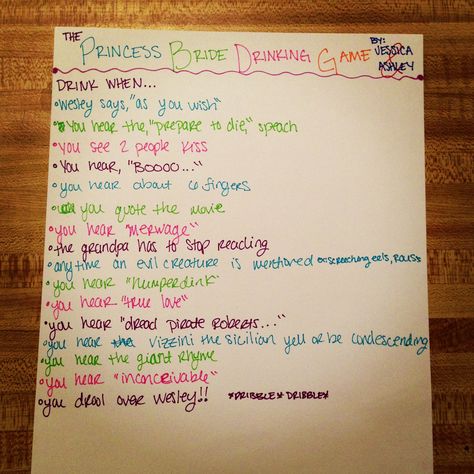 THE PRINCESS BRIDE DRINKING GAME BY: JESSICA
ASHLEY
DRINK WHEN...
• Wesley says, "as you wish"
• You hear the, "prepare to die," speach
• you see 2 people kiss
• You hear, "Boooo..."
• you hear about 6 fingers
• you quote the movie
• you hear "merwage"
• the grandpa has to stop reading
• any time an evil creature is mentioned screaching eels, ROUS's
• you hear "Humperdink"
• you hear "true love"
• you hear "dread pirate Roberts..."
• you hear Vizzini the Sicilian yell or be condescending
• you hear the giant rhyme
• you hear "inconceivable"
• you drool over Wesley!! *DRIBBLE* DRIBBLE*